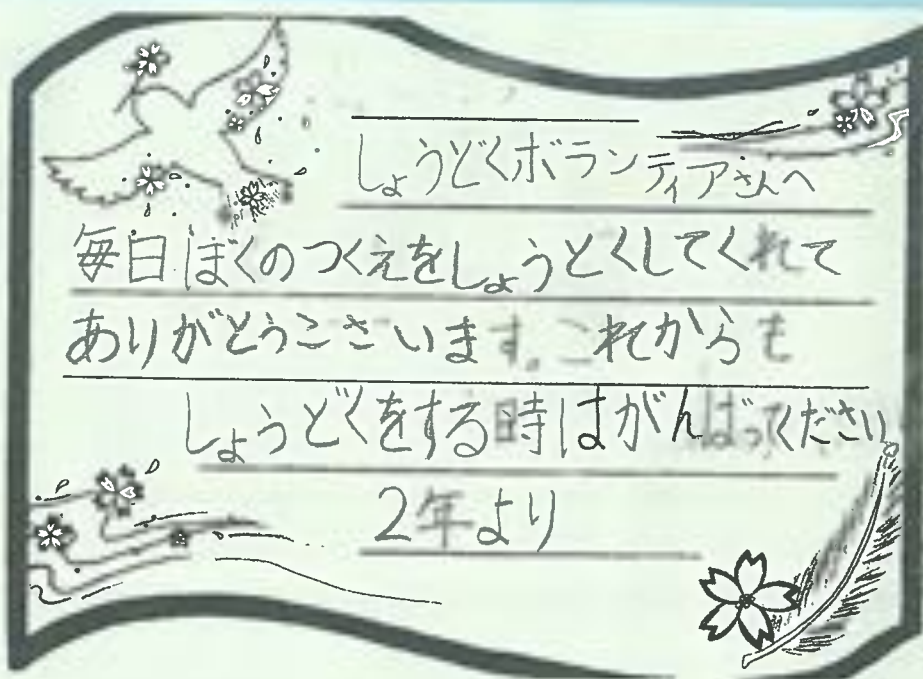 しょうどくボランティアさんへ
毎日ぼくのつくえをしょうとくしてくれて
ありがとうございます。これからも
しょうどくをする時はがんばってください
2年より